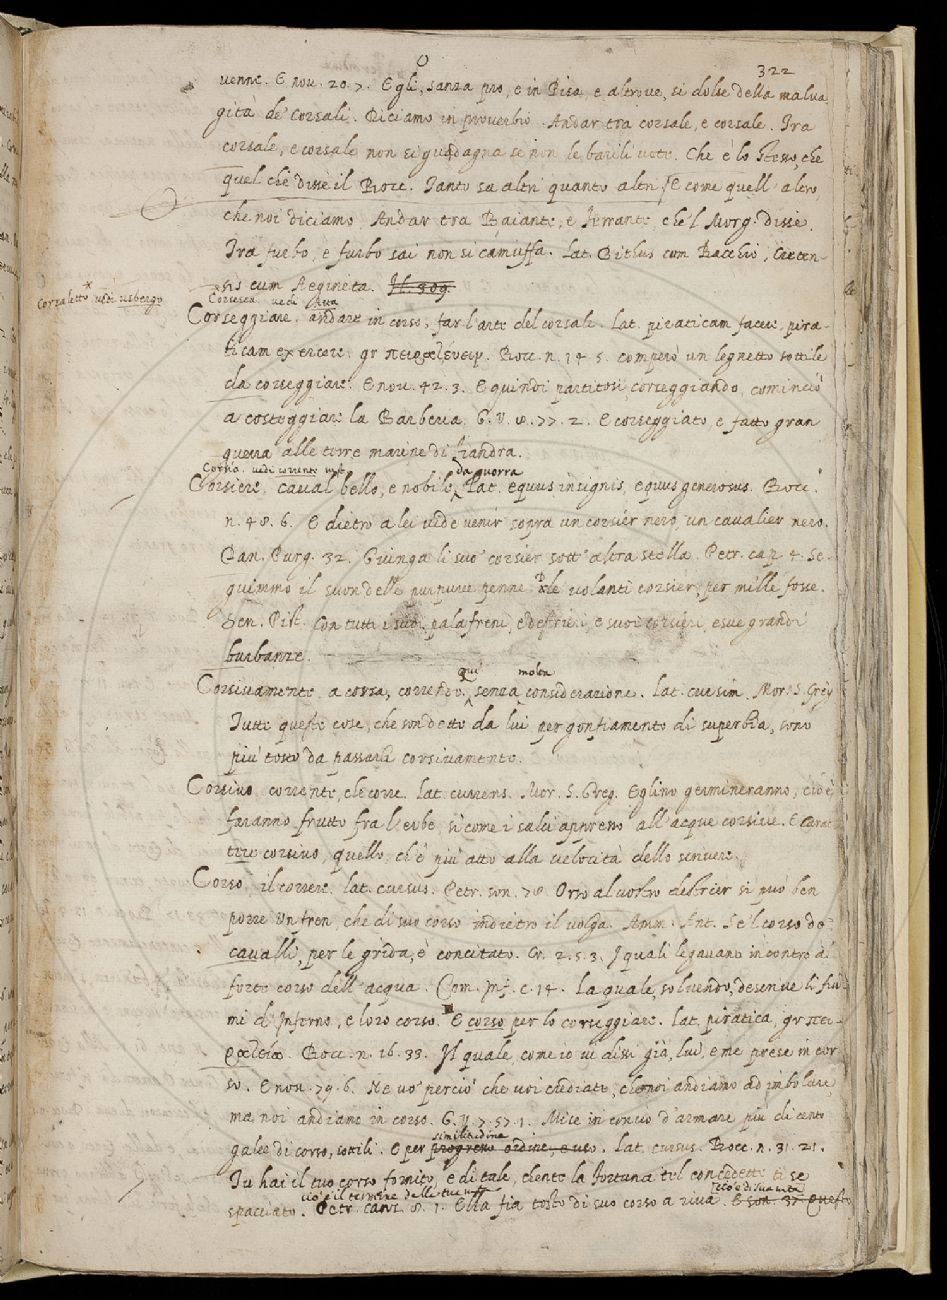 322
uenne. E nou. 20. 7. Egli, sanza pro, e in Pisa, e altroue, si dolse della malua
gità de' Corsali. Diciamo in prouerbio. Andar tra corsale, e corsale. Tra
corsale, e corsale non si guadagna se non le barili vote. Che è lo stesso, che
quel che disse il Bocc. Tanto sa altri quanto altri. E come quell'altro,
che noi diciamo Andar tra Baiante, e Ferrante che'l Morg. disse.
Tra furbo, e furbo sai non si camuffa. Lat. Bithus cum Bacchio, Creten-
sis cum Aegineta. Il. 309.
Corsaletto * uedi usbergo
Corsesca uedi
Corseggiare. andare in corso, far l'arte del corsale. Lat. piraticam facere, pira-
ticam exercere. gr. πειρατεύειν. Bocc. n. 14. 5. comperò un legnetto sottile
da corseggiare. E nou. 42. 3. E quindi partitosi, corseggiando, cominciò
a costeggiare la Barberia. G. V. 8. 77. 2. E corseggiato, e fatto gran
guerra alle terre marine di Fiandra.
Corsia. uedi corrente
da guerra
Corsiere, caual bello, e nobile, Lat. equus insignis, equus generosus. Bocc.
n. 48. 6. E dietro a lei uide uenir sopra un corsier nero, un caualier nero.
Dan. Purg. 32. Giunga li suo' corsier sott'altra stella. Petr. cap. 4. Se-
guimmo il suon delle purpuree penne De le volanti corsier, per mille fosse.
Sen. Pist. Con tutti i suoi palafreni, e destrieri, e suoi corsieri, e sue grandi
burbanze.
qui molta
Corsiuamente, a corsa, correndo, senza considerazione. Lat. cursim. Mor. S. Greg.
Tutte queste cose, che son dette da lui per gonfiamento di superbia, sono
più tosto da passarsi corsiuamente.
Corsiuo, corrente, che corre. Lat. currens. Mor. S. Greg. Eglino germineranno, cioè
faranno frutto fra l'erbe, sì come i salci appresso all'acque corsiue. E Carat
tere corsiuo, quello, ch'è più atto alla uelocità dello scriuere.
Corso, il correre. Lat. cursus. Petr. son. 78. Orso al vostro destrier si può ben
porre Un fren, che di suo corso indietro il volga. Amm. Ant. Se'l corso de'
caualli, per le grida, è concitato. Cr. 2. 5. 3. I quali legauano incontro al
forte corso dell'acqua. Com. Inf. c. 14. La quale, soluendo, descriue li fiu-
mi d'Inferno, e loro corso. E corso per lo corseggiare. Lat. piratica, gr. πει-
ρατεία. Bocc. n. 16. 33. Il quale, come io ui dissi già, lui, e me prese in cor
so. E nou. 79. 6. Ne uo' perciò che uoi crediate, che noi andiamo ad imbolare,
ma noi andiamo in corso. G. V. 7. 57. 1. Mise in concio d'armare più di cento
similitudine
galee di corso, sottili. E per progresso ordine, e uso. Lat. cursus. Bocc. n. 31. 21.
Tu hai il tuo corso fornito, e di tale, chente la fortuna tel concedette ti se
cioè il termine della tua uita
cioè di sua uita
spacciato. Petr. canz. 8. 1. Ella fia tosto di suo corso a riua. E son. 37. Questo